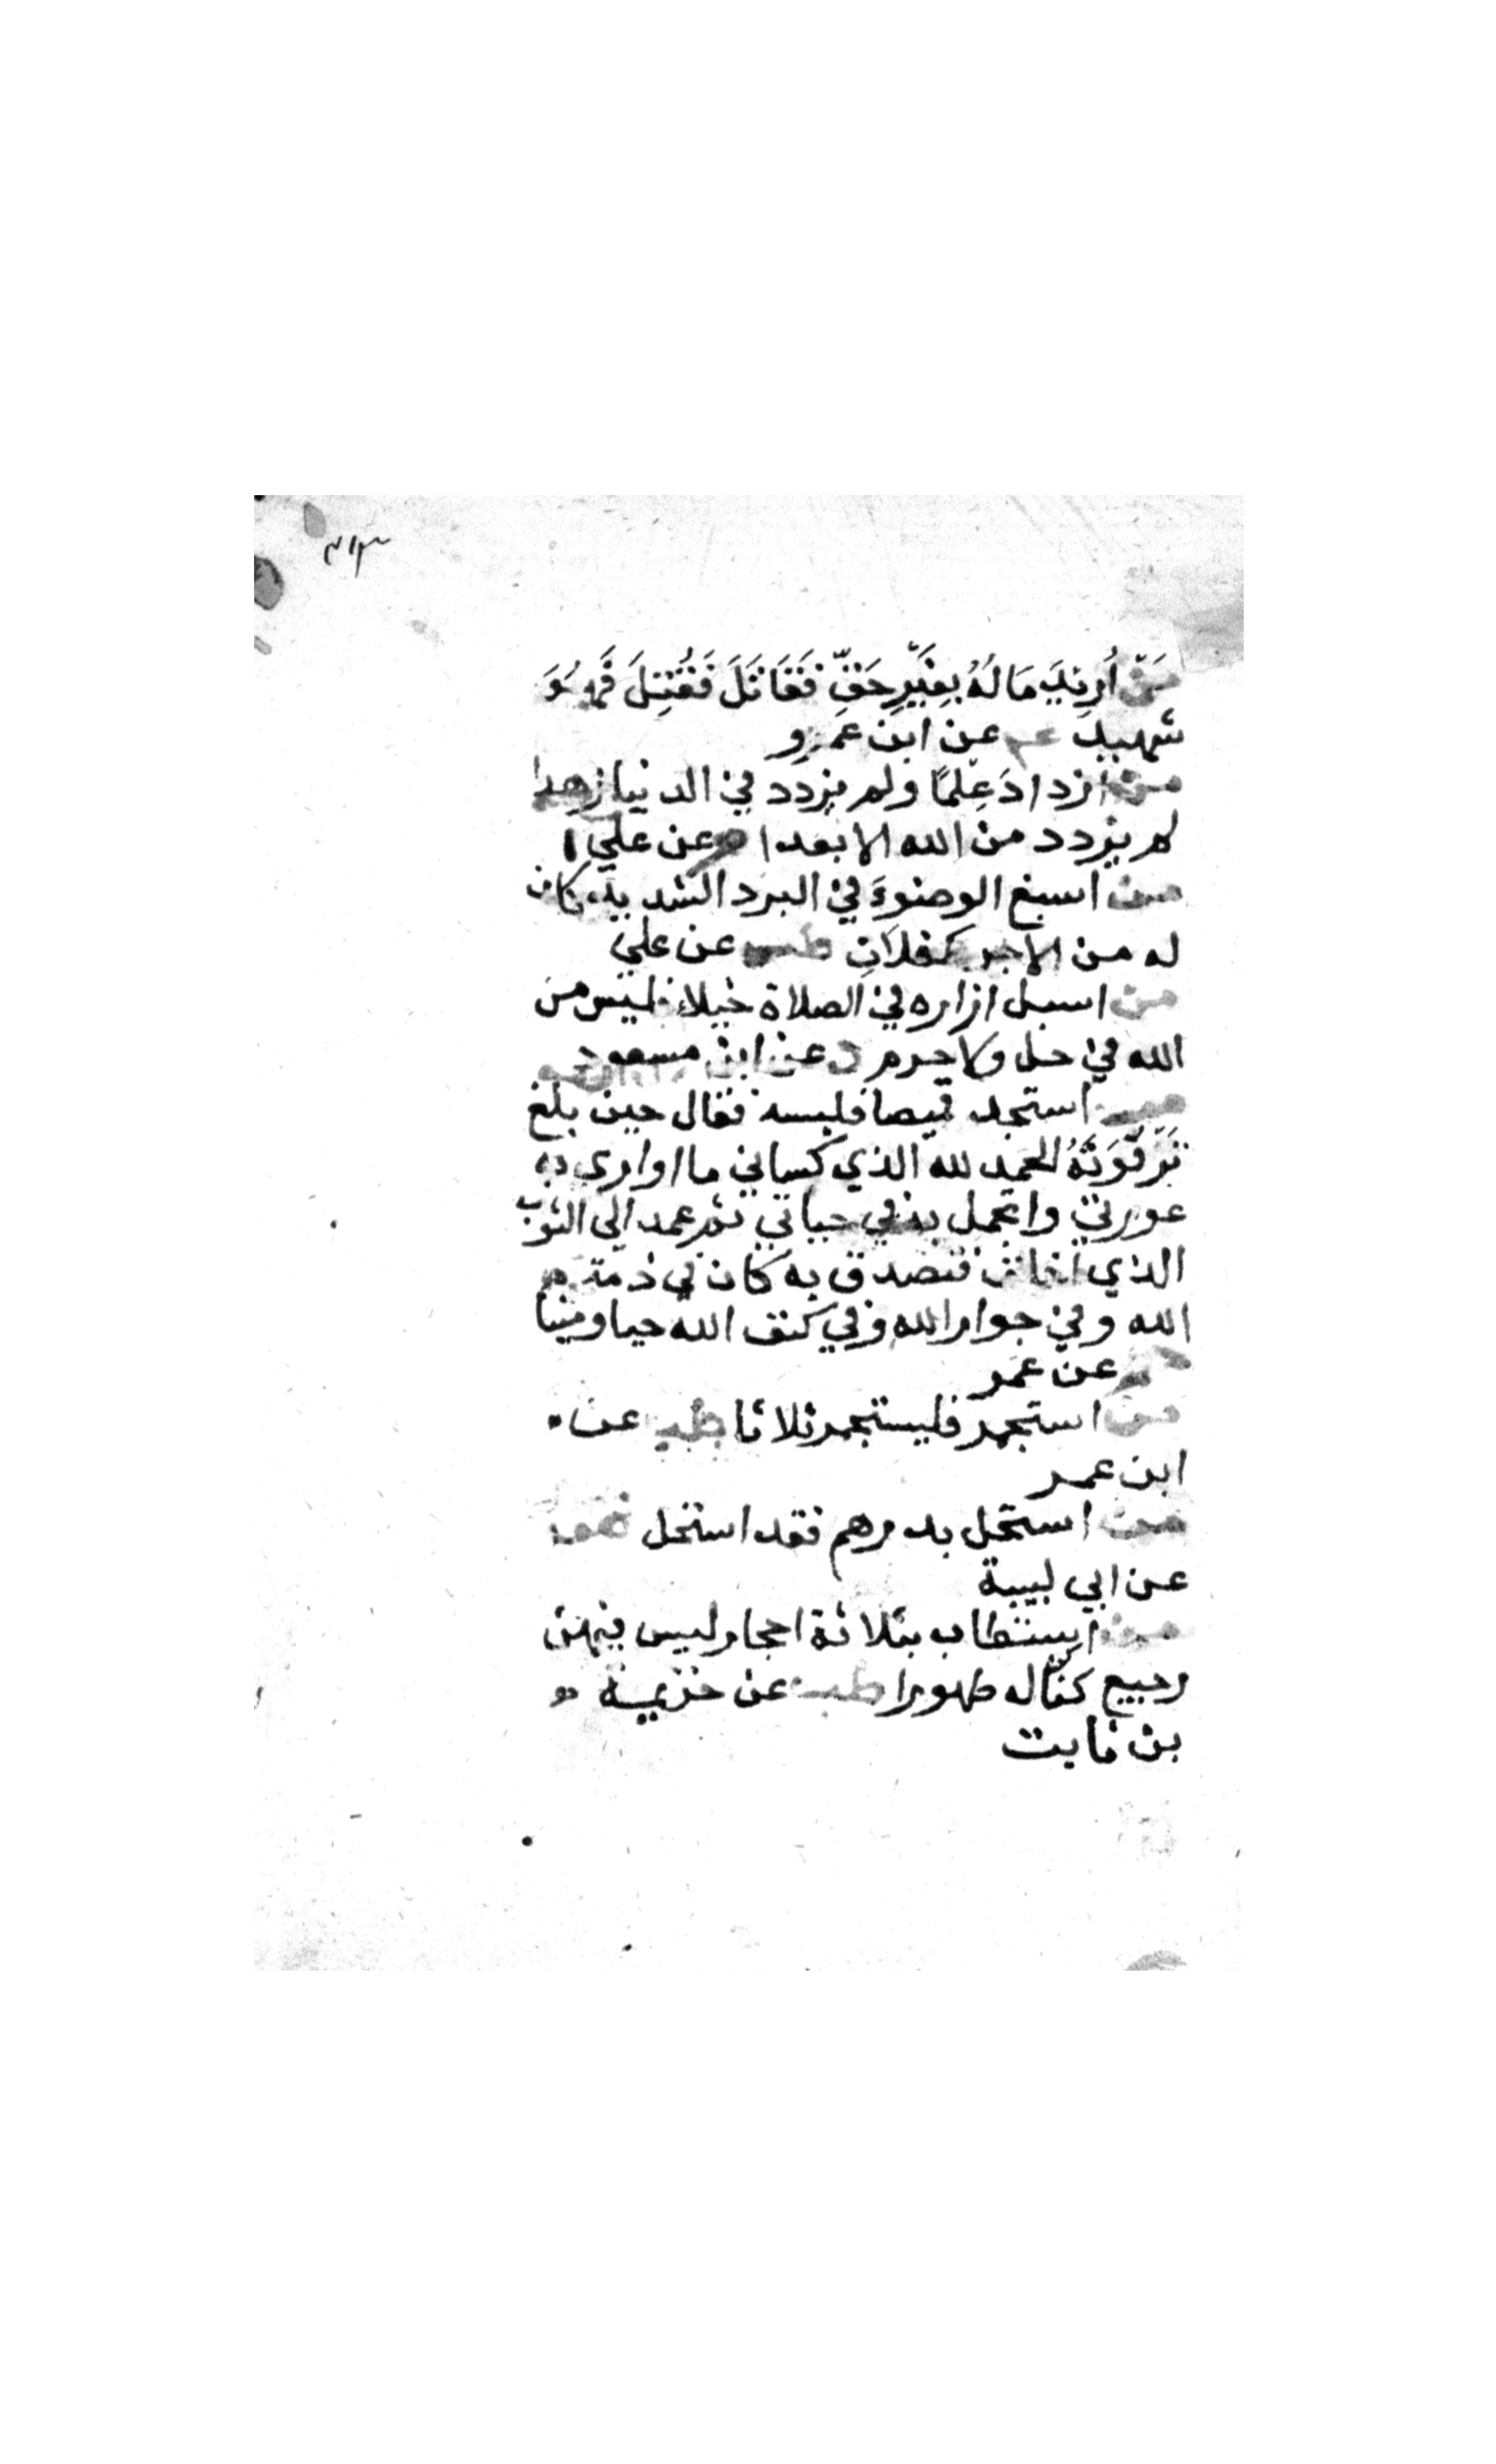 ٣١٣
مَنْ أُرِيدَ مَالُهُ بِغَيْرِ حَقٍّ فَقَاتَلَ فَقُتِلَ فَهُوَ
شهيد عن ابن عمرو
من ازداد عِلمًا ولم يزدد في الدنيا زهدا
لم يزدد من الله الا بعدا عن علي
من اسبغ الوضوءَ في البرد الشديد كان
له من الاجر كفلان طس عن علي
من اسبل ازاره في الصلاة خيلا فليس من
الله في حل ولا حرم د عن ابن مسعود
من استجد قميصا فلبسه فقال حين بلغ
تَرْقُوَتَهُ الحمد لله الذي كساني ما اواري به
عورتي واتجمل به في حياتي ثم عمد الى الثوب
الذي اخلق فتصدق به كان في ذمة
الله وفي جوار الله وفي كنف الله حيا وميتا
حم عن عمر
من استجمر فليستجمر ثلاثا طب عن
ابن عمر
من استحل بدرهم فقد استحل هق
عن ابي لبيبة
من استطاب بثلاثة احجار ليس فيهن
رجيع كنّ له طهورا طب عن خزيمة
بن ثابت